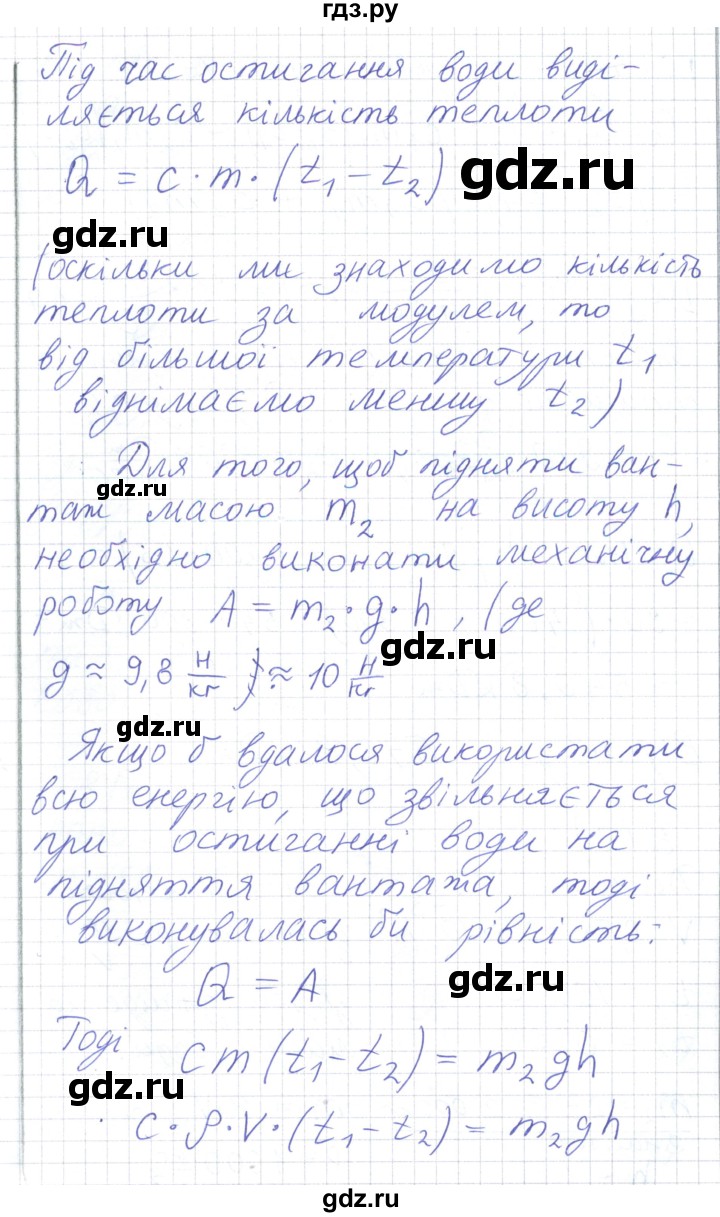 гдз.ру
Під час остигання води виді-
ляється кількість теплоти
Q = c · m · (t₁ − t₂) gdz.ru
gdz.ru
(оскільки ми знаходимо кількість
теплоти за модулем, то
від більшої температури t₁
віднімаємо меншу t₂)
Для того, щоб підняти ван-
gdz.ru
таж масою m₂ на висоту h,
необхідно виконати механічну
роботу A = m₂ · g · h, (де
gdz.ru
g ≈ 9,8 Н/кг) ≈ 10 Н/кг
gdz.ru
Якщо б вдалося використати
всю енергію, що звільняється
при остиганні води на
підняття вантажа, тоді
виконувалась би рівність:
Q = A gdz.ru
Тоді cm(t₁ − t₂) = m₂gh
gdz.ru
c · ρ · V · (t₁ − t₂) = m₂gh
gdz.ru